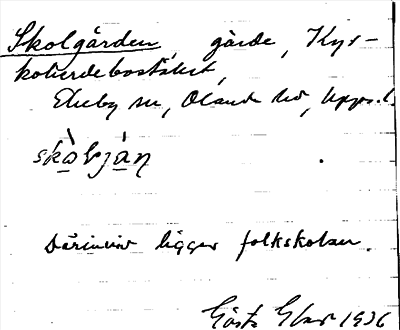 Skolgården, gärde, Kyr-
koherdebostället,
Ekeby sn, Olands hd, Upps. l.
skòlgján
Därinvid ligger folkskolan.
Gösta 1936